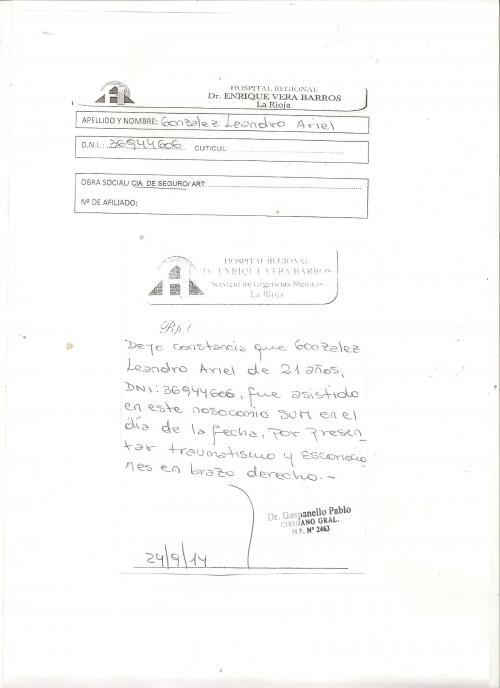 HOSPITAL REGIONAL
Dr. ENRIQUE VERA BARROS
La Rioja
APELLIDO Y NOMBRE: Gonzalez Leandro Ariel
D.N.I.: 36944606 CUIT/CUIL:
OBRA SOCIAL/ CIA. DE SEGURO/ ART:
Nº DE AFILIADO:
HOSPITAL REGIONAL
Dr. ENRIQUE VERA BARROS
Servicio de Urgencias Médicas
La Rioja
Rp./
Dejo constancia que Gonzalez
Leandro Ariel de 21 años,
DNI: 36944606, fue asistido
en este nosocomio SUM en el
día de la fecha, por presen-
tar traumatismo y escoriacio
nes en brazo derecho.-
Dr. Gaspanello Pablo
CIRUJANO GRAL.
M.P. Nº 2463
24/9/14